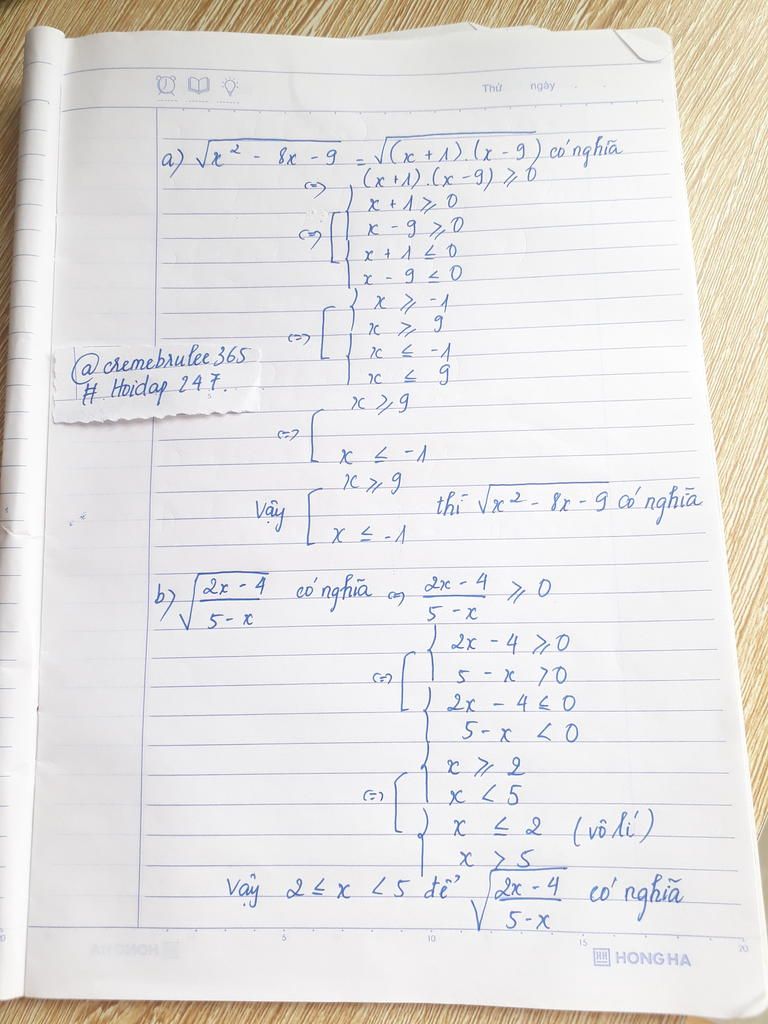 Thứ ngày
a) √(x² - 8x - 9) = √((x + 1).(x - 9)) có nghĩa
<=> (x+1).(x-9) ≥ 0
x + 1 ≥ 0
<=> x - 9 ≥ 0
x + 1 ≤ 0
x - 9 ≤ 0
x ≥ -1
<=> x ≥ 9
x ≤ -1
x ≤ 9
@cremebrulee365
# Hoidap 247.
x ≥ 9
<=>
x ≤ -1
x ≥ 9
Vậy thì √(x² - 8x - 9) có nghĩa
x ≤ -1
b) √((2x - 4)/(5 - x)) có nghĩa <=> (2x - 4)/(5 - x) ≥ 0
2x - 4 ≥ 0
<=> 5 - x > 0
2x - 4 ≤ 0
5 - x < 0
x ≥ 2
<=> x < 5
x ≤ 2 (vô lí)
x > 5
Vậy 2 ≤ x < 5 để √((2x - 4)/(5 - x)) có nghĩa
5 10 15 20
HH HONG HA